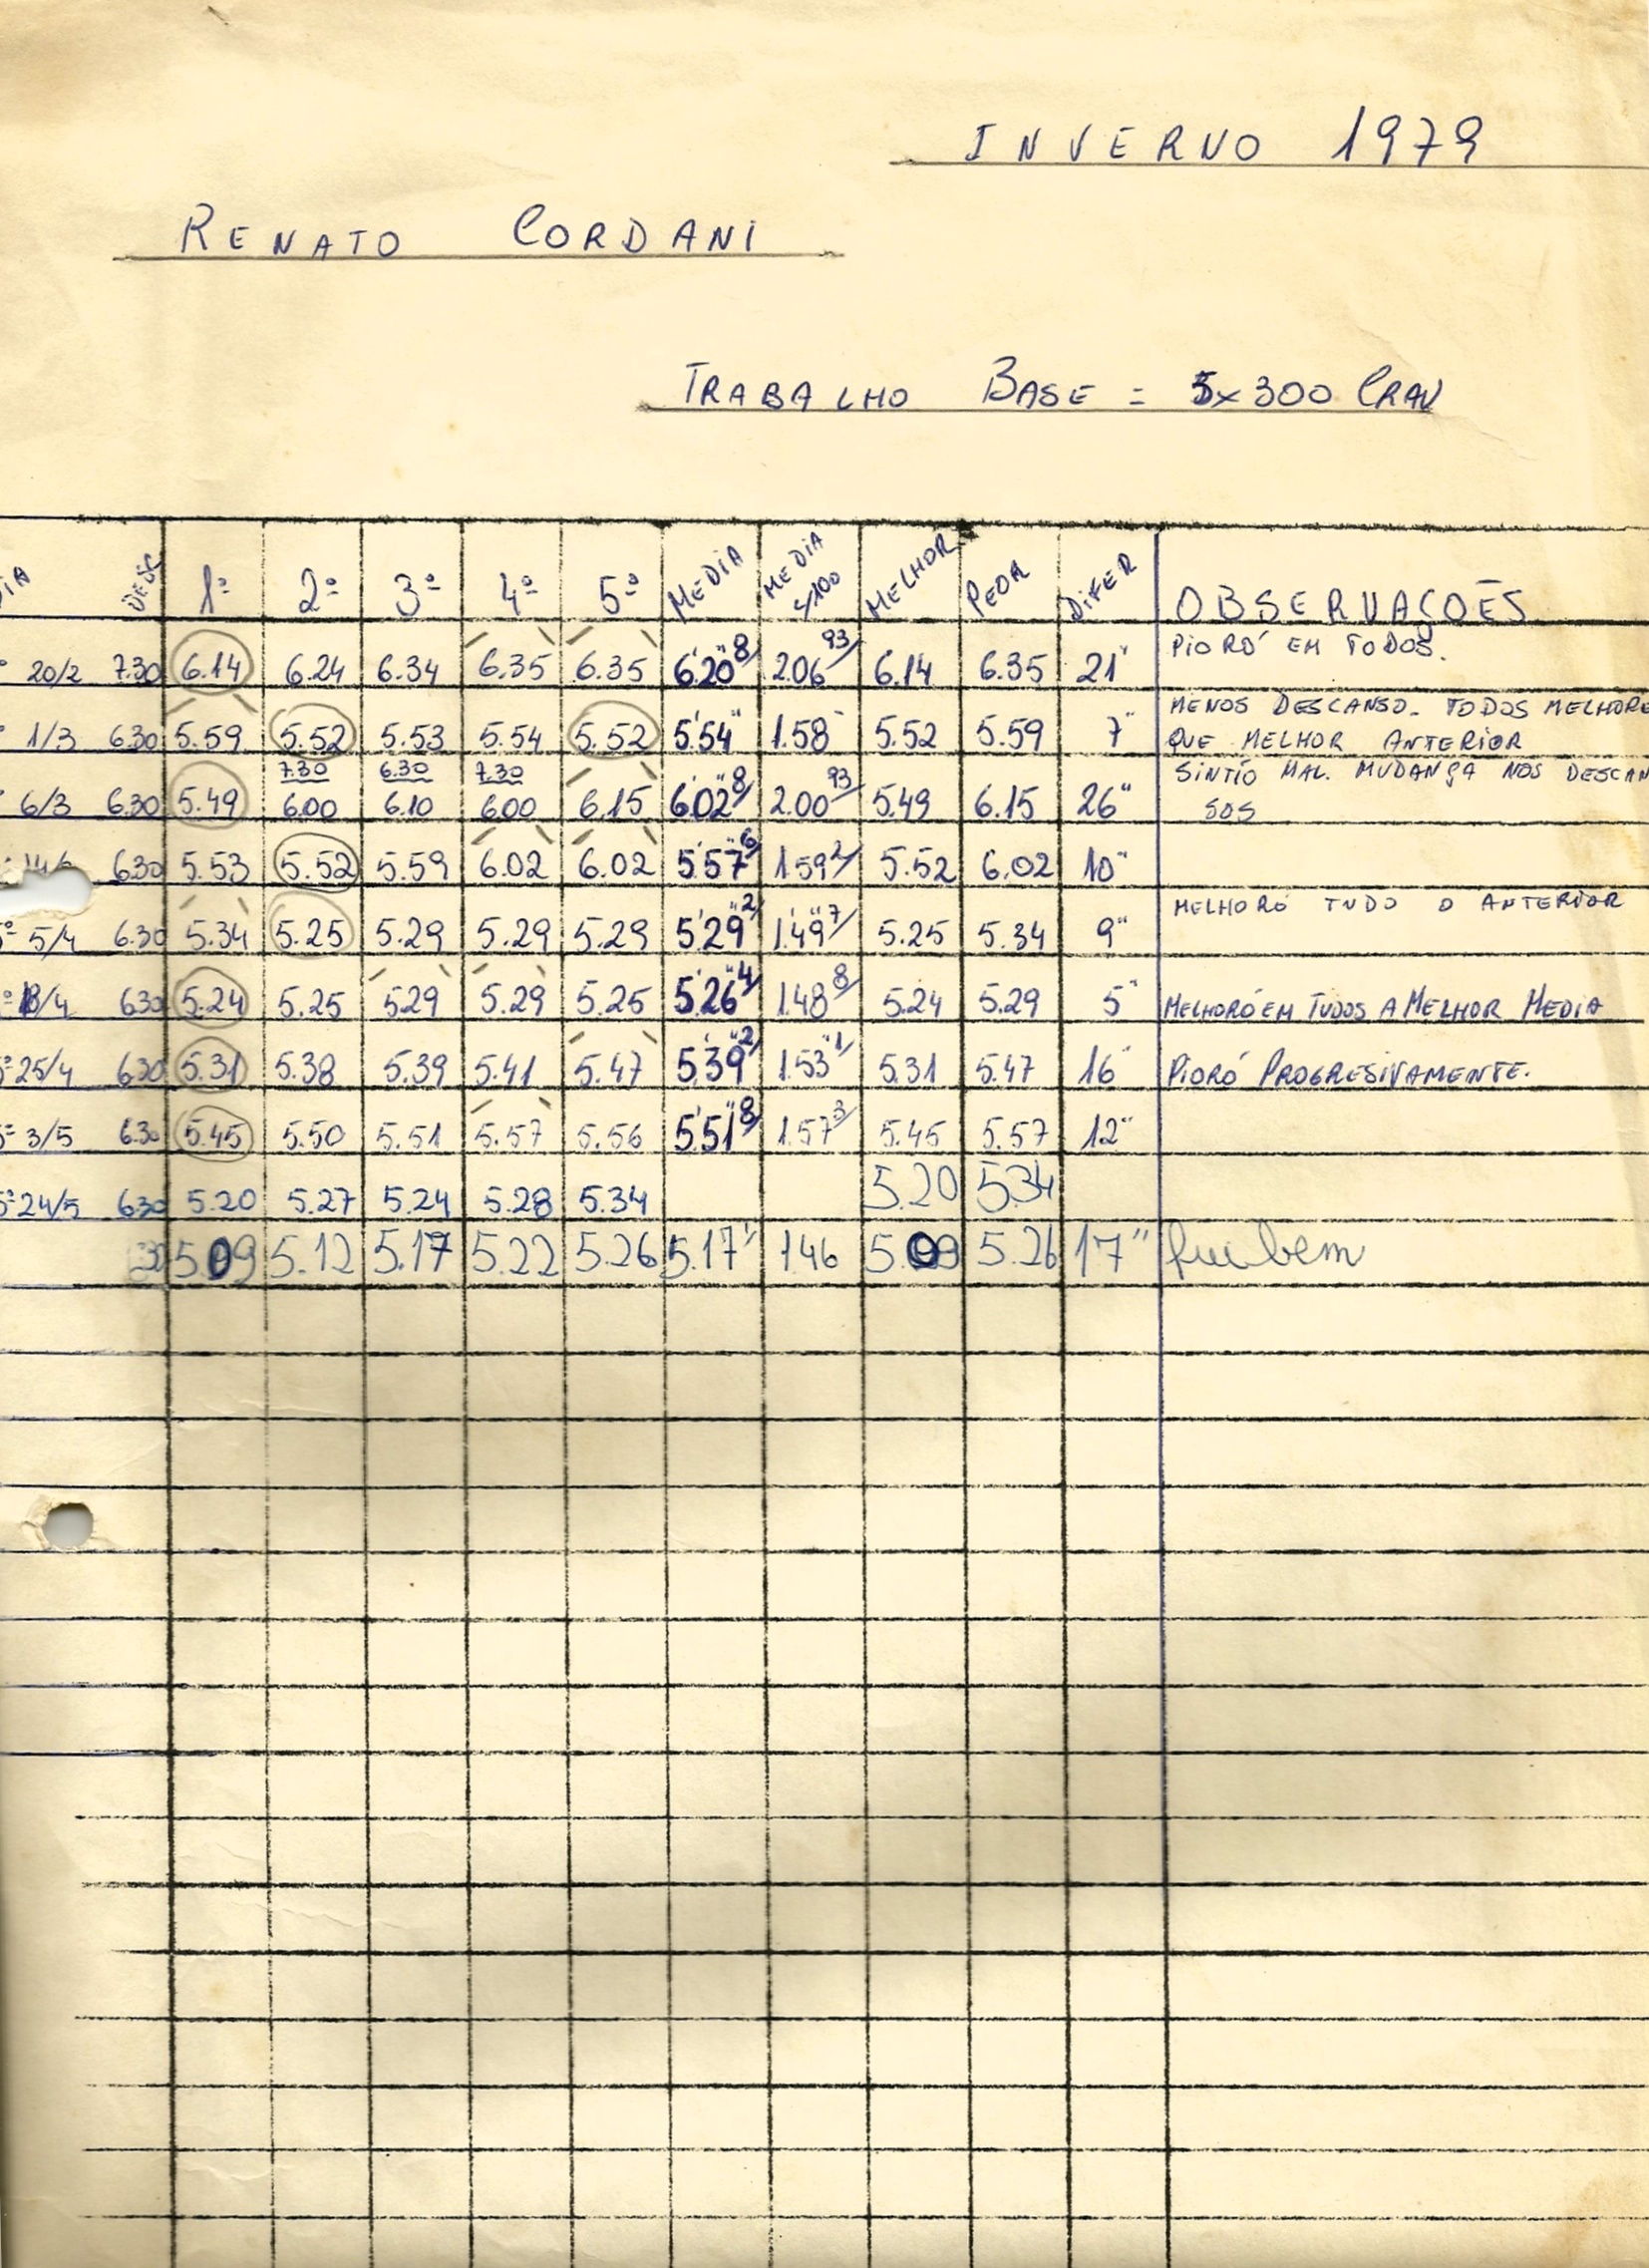 INVERNO 1979
RENATO CORDANI
TRABALHO BASE = 5x300 CRAW
IA DESC 1º 2º 3º 4º 5º MEDIA MEDIA s/100 MELHOR PEOR DIFER OBSERVAÇOES
20/2 7.30 6.14 6.24 6.34 6.35 6.35 6'20"8/ 2.06 93/ 6.14 6.35 21" PIORÓ EM TODOS.
1/3 6.30 5.59 5.52 5.53 5.54 5.52 5'54" 1.58" 5.52 5.59 7" MENOS DESCANSO. TODOS MELHORE
QUE MELHOR ANTERIOR
7.30 6.30 7.30 SINTÍO MAL. MUDANÇA NOS DESCAN
6/3 6.30 5.49 6.00 6.10 6.00 6.15 6'02"8/ 2.00 93/ 5.49 6.15 26" SOS
6.30 5.53 5.52 5.59 6.02 6.02 5'57"6/ 1.59 2/ 5.52 6.02 10"
5/4 6.30 5.34 5.25 5.29 5.29 5.29 5'29"2/ 1'49"7/ 5.25 5.34 9" MELHORÓ TUDO O ANTERIOR
18/4 6.30 5.24 5.25 5.29 5.29 5.25 5'26"4/ 1.48 8/ 5.24 5.29 5" MELHORÓ EM TUDOS A MELHOR MEDIA
25/4 6.30 5.31 5.38 5.39 5.41 5.47 5'39"2/ 1.53"1/ 5.31 5.47 16" PIORÓ PROGRESIVAMENTE.
3/5 6.30 5.45 5.50 5.51 5.57 5.56 5'51"8/ 1.57 3/ 5.45 5.57 12"
24/5 6.30 5.20 5.27 5.24 5.28 5.34 5.20 5.34
5.09 5.12 5.17 5.22 5.26 5.17" 1.46 5.09 5.26 17" fui bem